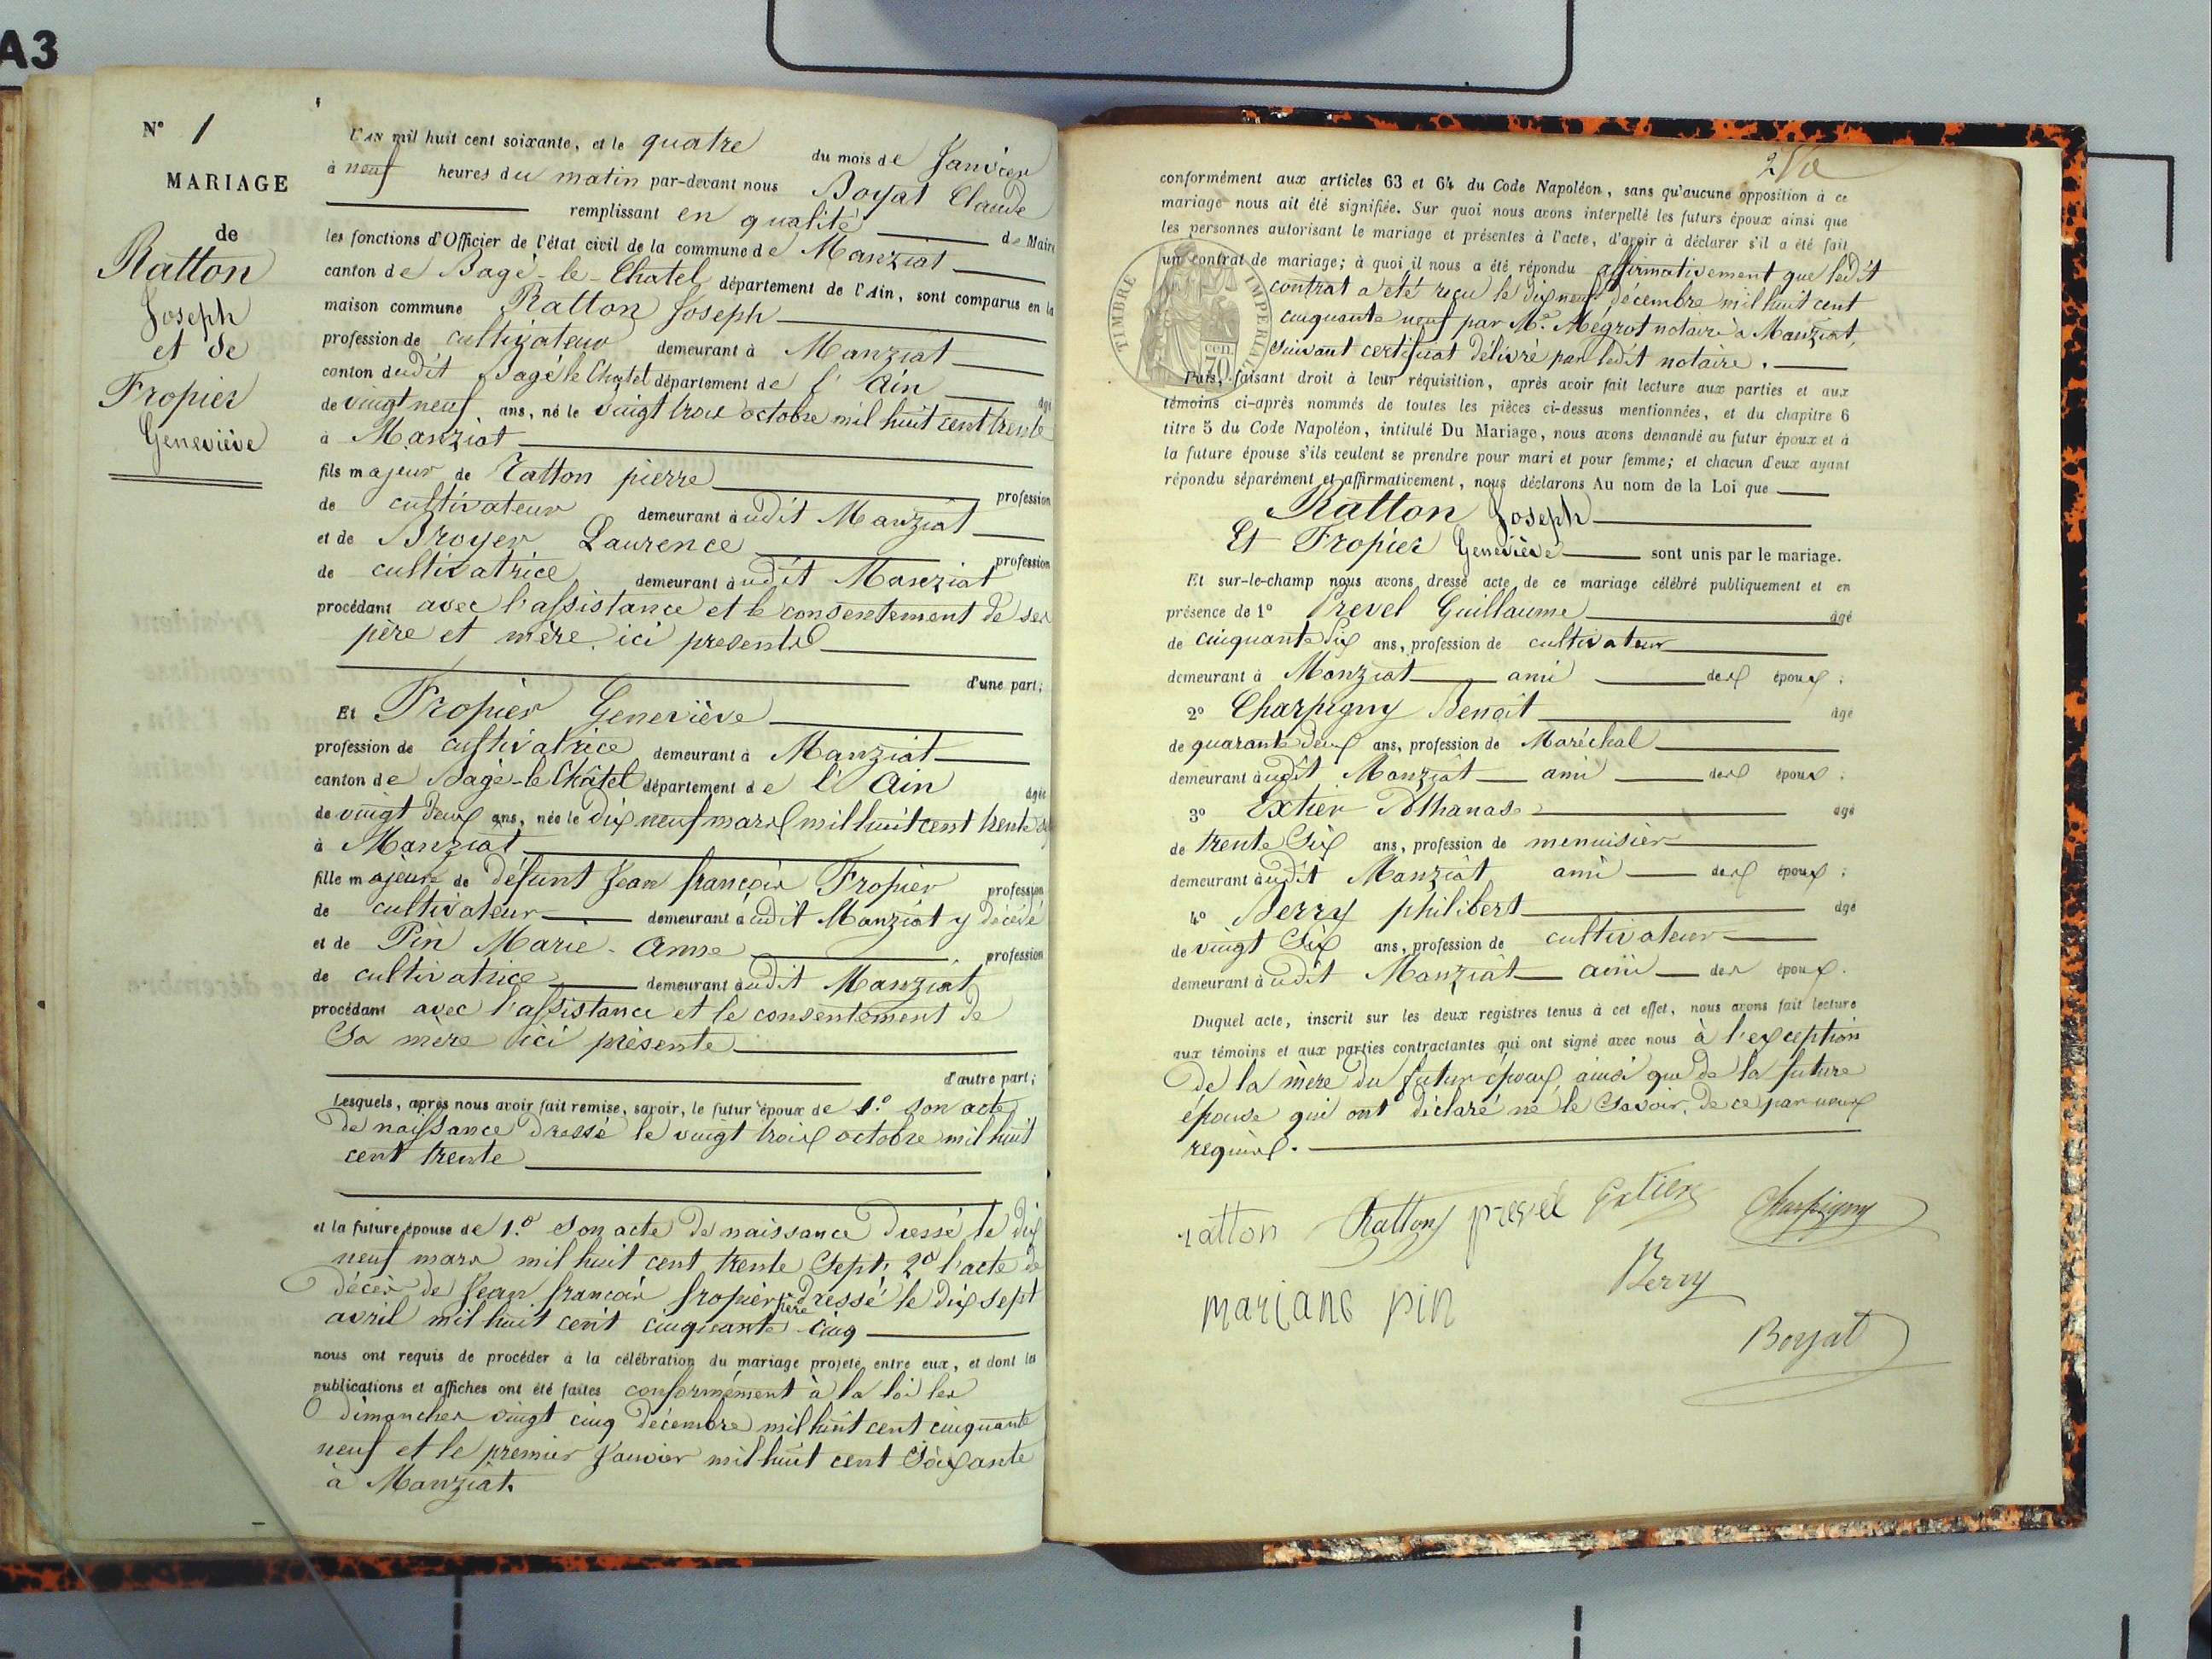 A3
N° 1
MARIAGE
de
Ratton
Joseph
et de
Fropier
Geneviève
L'AN mil huit cent soixante, et le quatre du mois de Janvier
à neuf heures du matin par-devant nous Boyat Claude
remplissant en qualité de Maire
les fonctions d'Officier de l'état civil de la commune de Manziat
canton de Bagé-le-Chatel département de l'Ain, sont comparus en la
maison commune Ratton Joseph
profession de cultivateur demeurant à Manziat
canton dudit Bagé le Chatel département de l'Ain âgé
de vingt neuf ans, né le vingt trois octobre mil huit cent trente
à Manziat
fils majeur de Ratton pierre profession
de cultivateur demeurant audit Manziat
et de Broyer Laurence profession
de cultivatrice demeurant audit Manziat
procédant avec l'assistance et le consentement de ses
père et mère ici presents
d'une part;
Et Fropier Geneviève
profession de cultivatrice demeurant à Manziat
canton de Bagé-le Châtel département de l'Ain âgée
de vingt deux ans, née le dix neuf mars mil huit cent trente sept
à Manziat
fille majeure de défunt Jean françois Fropier profession
de cultivateur demeurant audit Manziat y décédé
et de Pin Marie-Anne profession
de cultivatrice demeurant audit Manziat
procédant avec l'assistance et le consentement de
Sa mère ici présente
d'autre part;
Lesquels, après nous avoir fait remise, savoir, le futur époux de 1.° son acte
de naissance dressé le vingt trois octobre mil huit
cent trente
et la future épouse de 1.° son acte de naissance dressé le dix
neuf mars mil huit cent trente Sept; 2° l'acte de
décès de Jean françois fropier père dressé le dix sept
avril mil huit cent cinquante-cinq
nous ont requis de procéder à la célébration du mariage projeté entre eux, et dont les
publications et affiches ont été faites conformément à la loi les
dimanches vingt cinq décembre mil huit cent cinquante
neuf et le premier Janvier mil huit cent Soixante
à Manziat.
conformément aux articles 63 et 64 du Code Napoléon, sans qu'aucune opposition à ce
mariage nous ait été signifiée. Sur quoi nous avons interpellé les futurs époux ainsi que
les personnes autorisant le mariage et présentes à l'acte, d'avoir à déclarer s'il a été fait
un contrat de mariage; à quoi il nous a été répondu affirmativement que ledit
contrat a été reçu le dix neuf décembre mil huit cent
cinquante neuf par Me. Mégrot notaire à Manziat,
suivant certificat délivré par ledit notaire.
TIMBRE IMPERIAL
70 cen.
Puis, faisant droit à leur réquisition, après avoir fait lecture aux parties et aux
témoins ci-après nommés de toutes les pièces ci-dessus mentionnées, et du chapitre 6
titre 5 du Code Napoléon, intitulé Du Mariage, nous avons demandé au futur époux et à
la future épouse s'ils veulent se prendre pour mari et pour femme; et chacun d'eux ayant
répondu séparément et affirmativement, nous déclarons Au nom de la Loi que
Ratton Joseph
Et Fropier Geneviève sont unis par le mariage.
Et sur-le-champ nous avons dressé acte de ce mariage célébré publiquement et en
présence de 1° Prevel Guillaume âgé
de cinquante Six ans, profession de cultivateur
demeurant à Manziat ami des époux;
2° Charpigny Benoit âgé
de quarante deux ans, profession de Maréchal
demeurant audit Manziat ami des époux;
3° Extier Athanase âgé
de trente Six ans, profession de menuisier
demeurant audit Manziat ami des époux;
4° Berry philibert âgé
de vingt Six ans, profession de cultivateur
demeurant audit Manziat ami des époux.
Duquel acte, inscrit sur les deux registres tenus à cet effet, nous avons fait lecture
aux témoins et aux parties contractantes qui ont signé avec nous à l'exception
de la mère du futur époux, ainsi que de la future
épouse qui ont déclaré ne le Savoir, de ce par nous
requises.
ratton Ratton prevel Extier Charpigny
Berry
mariane pin
Boyat